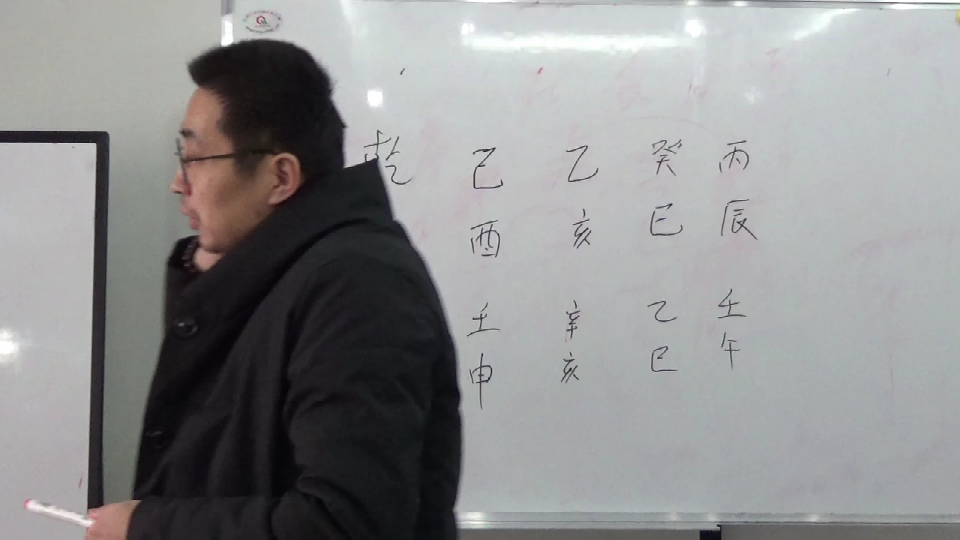 乾 己 乙 癸 丙
酉 亥 巳 辰
壬 辛 乙 壬
申 亥 巳 午